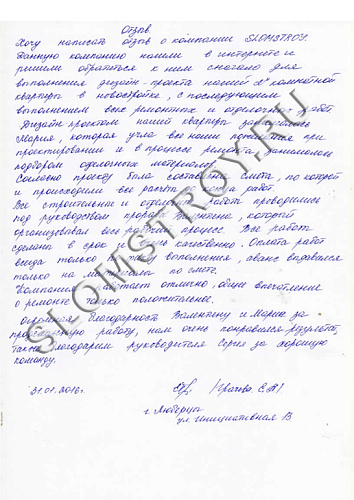 Отзыв.
Хочу написать отзыв о компании SLOMSTROY.
Данную компанию нашли в интернете и
решили обратиться к ним сначала для
выполнения дизайн-проекта нашей 2х комнатной
квартиры в новостройке, с последующим
выполнением всех ремонтных и отделочных работ.
Дизайн проектом нашей квартиры занималась
Мария, которая учла все наши пожелания при
проектировании и в процессе ремонта занималась
подбором отделочных материалов.
Согласно проекту была составлена смета, по которой
и происходили все расчеты до конца работ.
Все строительные и отделочные работы проводились
под руководством прораба Валентина, который
организовывал весь рабочий процесс. Все работы
сделаны в срок и качественно. Оплата работ
всегда только после выполнения, аванс выдавался
только на материалы по смете.
Компания работает отлично, общее впечатление
о ремонте только положительное.
Огромная благодарность Валентину и Марие за
проделанную работу, нам очень понравился результат,
также благодарим руководителя Сергея за хорошую
команду.
31.01.2016г. /Грачева С.А/
г. Люберцы
ул. Инициативная 13
SLOMSTROY.RU
SLOMSTROY.RU